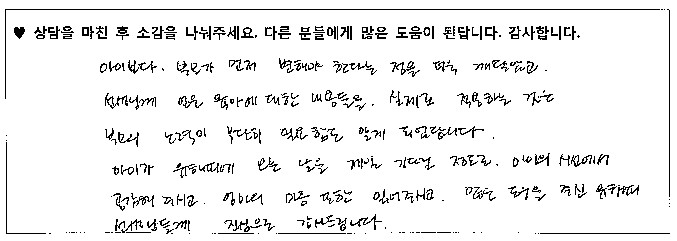 ♥ 상담을 마친 후 소감을 나눠주세요. 다른 분들에게 많은 도움이 된답니다. 감사합니다.
아이보다. 부모가 먼저 변해야 한다는 점을 깨달았고.
선생님께 얻은 육아에 대한 내용들을. 실제로 적용하는 것은
부모의 노력이 부단히 필요함도 알게 되었답니다.
아이가 오는 날을 제일 기다릴 정도로. 아이의 시선에서
공감해 주시고. 엄마의 마음 또한 읽어주시고. 많은 도움을 주신
선생님들께 진심으로 감사드립니다.